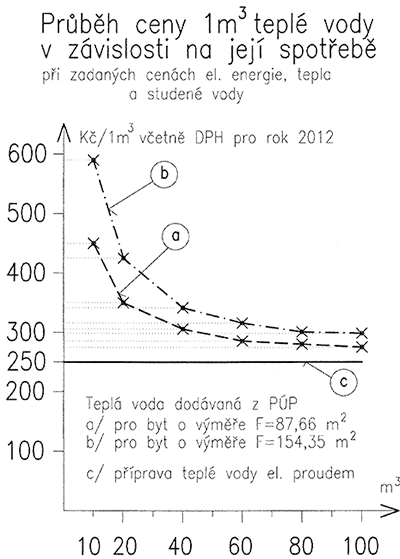 Průběh ceny 1m³ teplé vody
v závislosti na její spotřebě
při zadaných cenách el. energie, tepla
a studené vody
Kč/1m³ včetně DPH pro rok 2012
600
b
500
a
400
300
250
c
200
Teplá voda dodávaná z PÚP
a/ pro byt o výměře F=87,66 m²
b/ pro byt o výměře F=154,35 m²
100
c/ příprava teplé vody el. proudem
m³
10 20 40 60 80 100